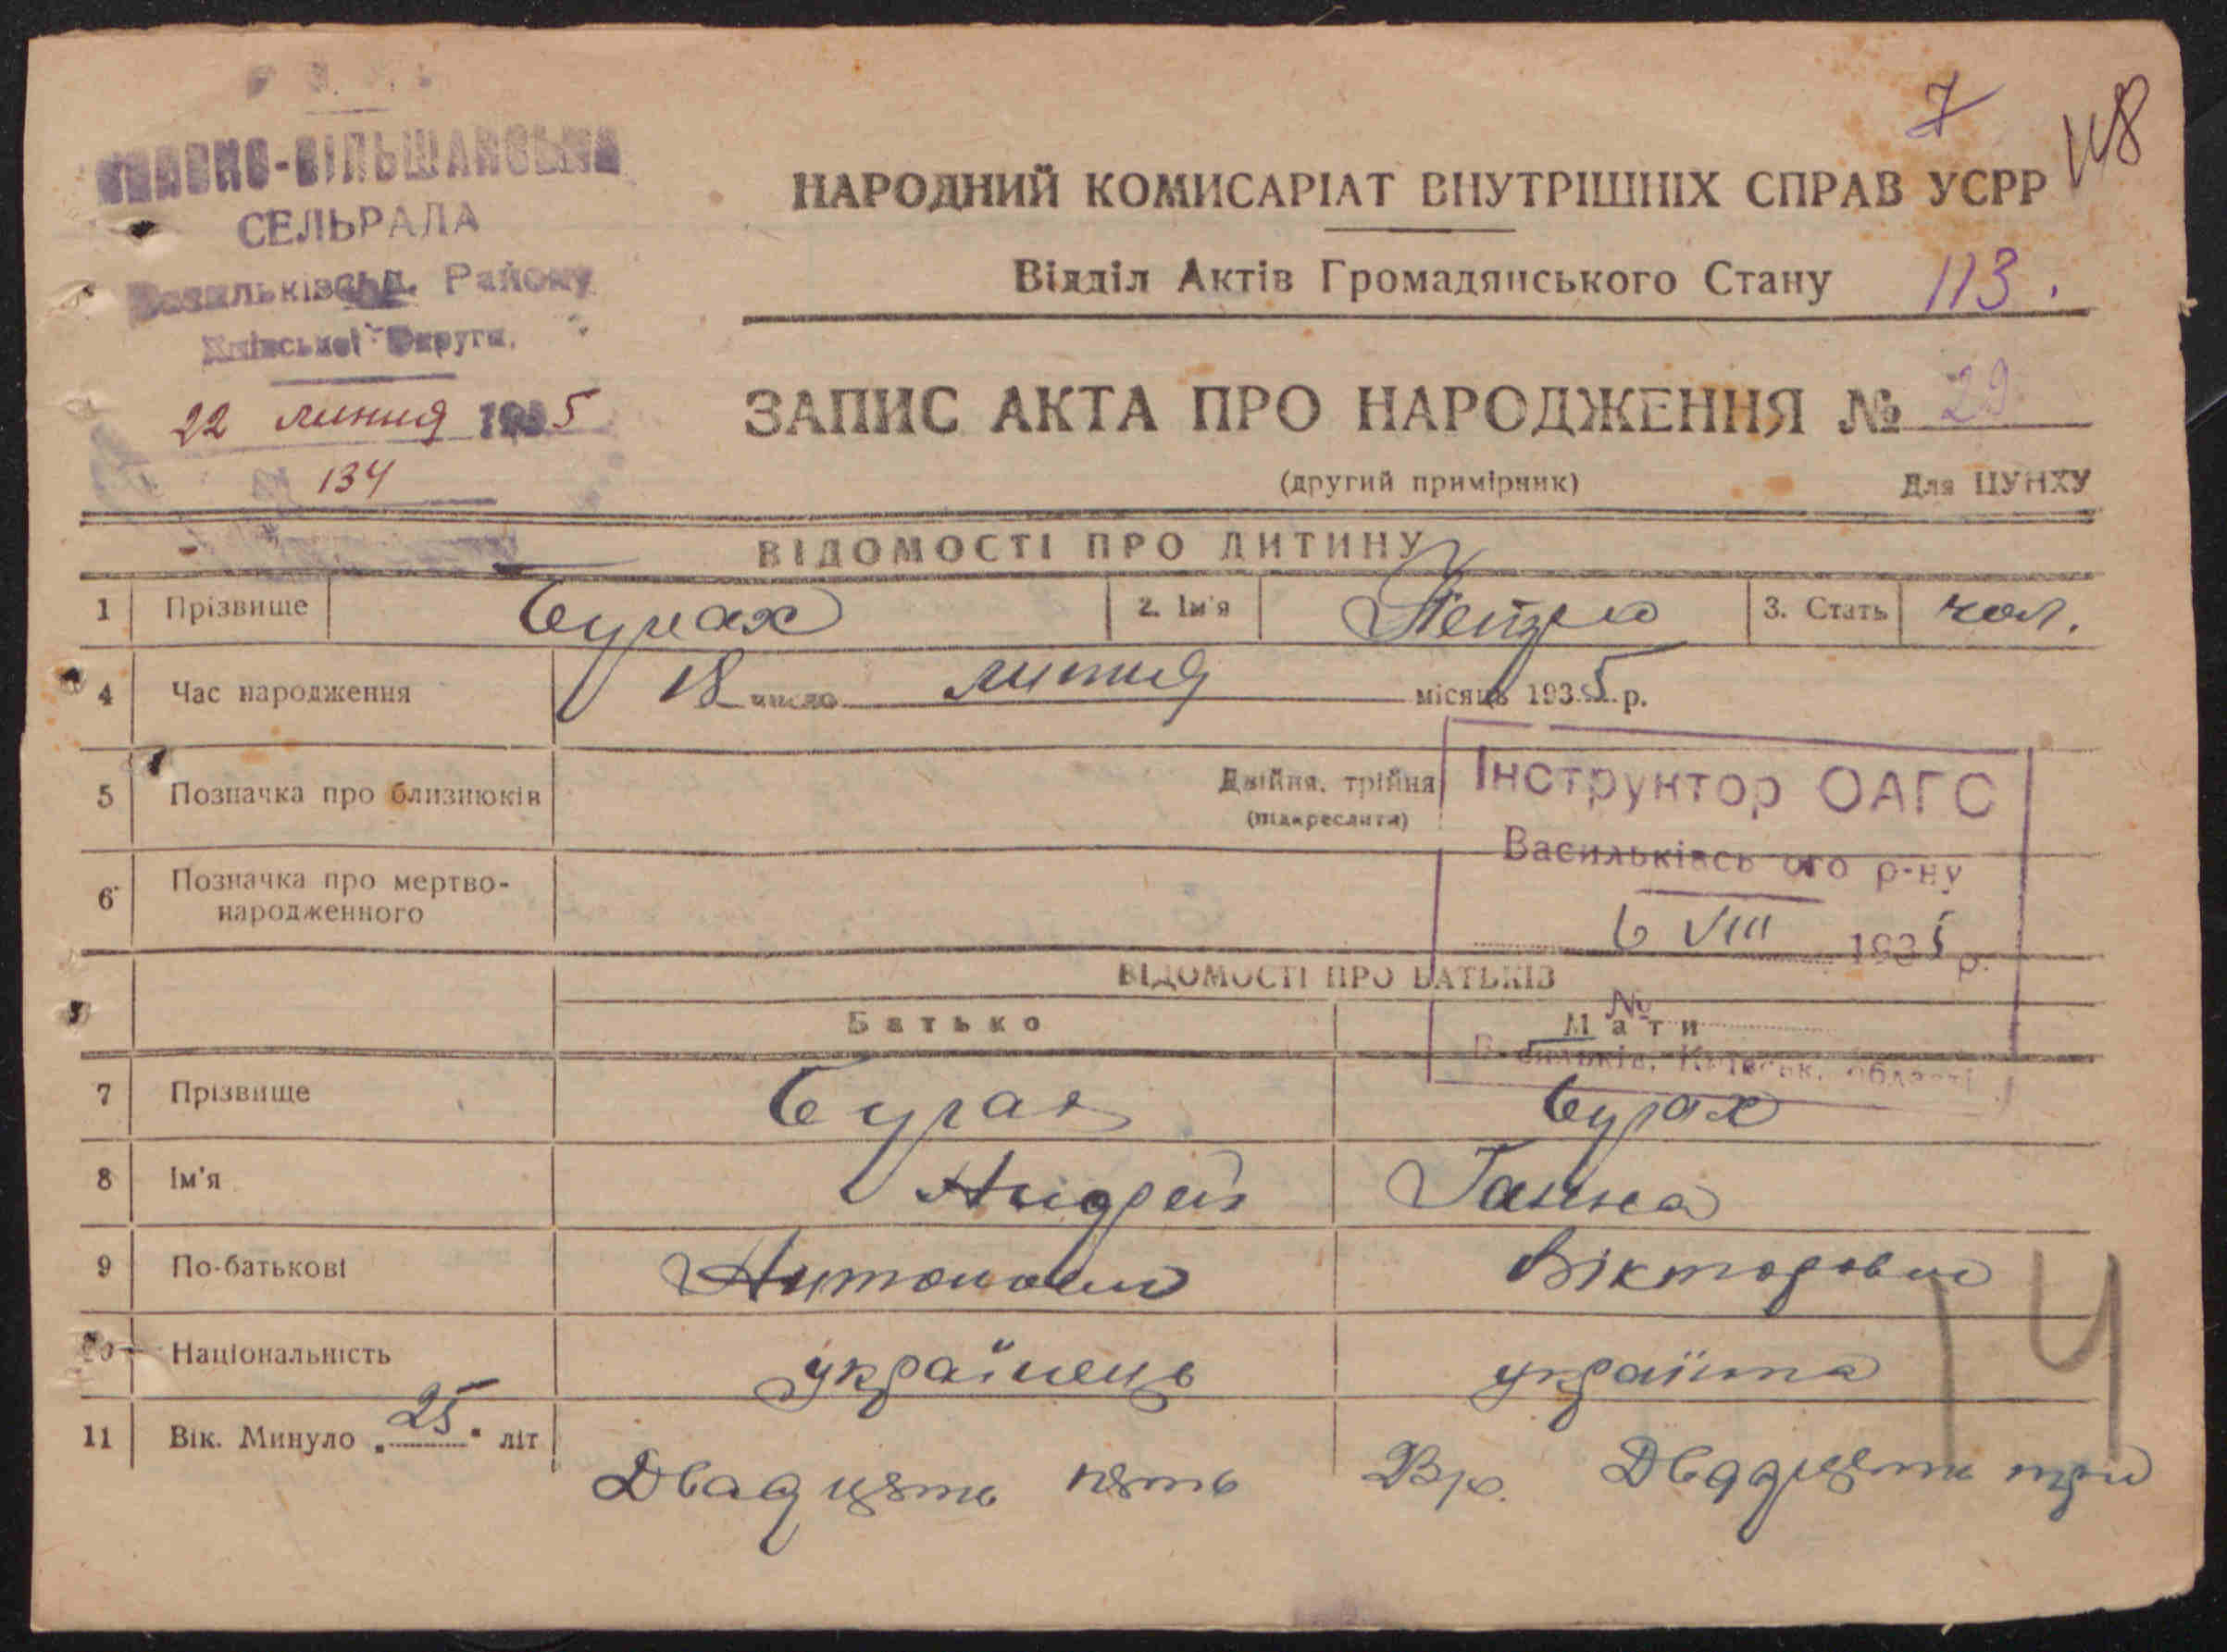 -ВІЛЬШАНСЬКА
СЕЛЬРАДА
Васильківськ. Району
Київської Округи.
22 липня 1935
134
7
118
НАРОДНИЙ КОМИСАРІАТ ВНУТРІШНІХ СПРАВ УСРР
Відділ Актів Громадянського Стану 113.
ЗАПИС АКТА ПРО НАРОДЖЕННЯ № 29
(другий примірник) Для ЦУНХУ
ВІДОМОСТІ ПРО ДИТИНУ
1 Прізвище 2. Ім'я Петро 3. Стать чол.
4 Час народження 18 число липня місяць 1935 р.
5 Позначка про близнюків Двійня, трійня
(підкреслити)
6 Позначка про мертво-
народженного
Інструктор ОАГС
Васильківсь ого р-ну
6 VIII 1935 р.
№
Васильків, Київськ. області
ВІДОМОСТІ ПРО БАТЬКІВ
Батько Мати
7 Прізвище
8 Ім'я Андрей Ганна
9 По-батькові Антонови Вікторовни
10 Національність українець українка
11 Вік. Минуло „25" літ Двадцять пять Двадцять три
14